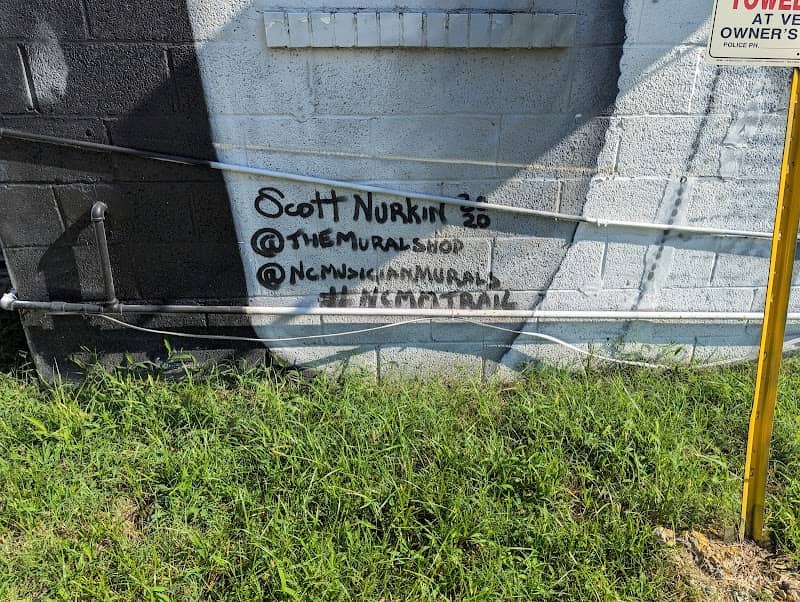 TOWED
AT VE
OWNER'S
POLICE PH.
Scott Nurkin 20
20
@THEMURALSHOP
@NCMUSICIANMURALS
#NCMMTRAIL